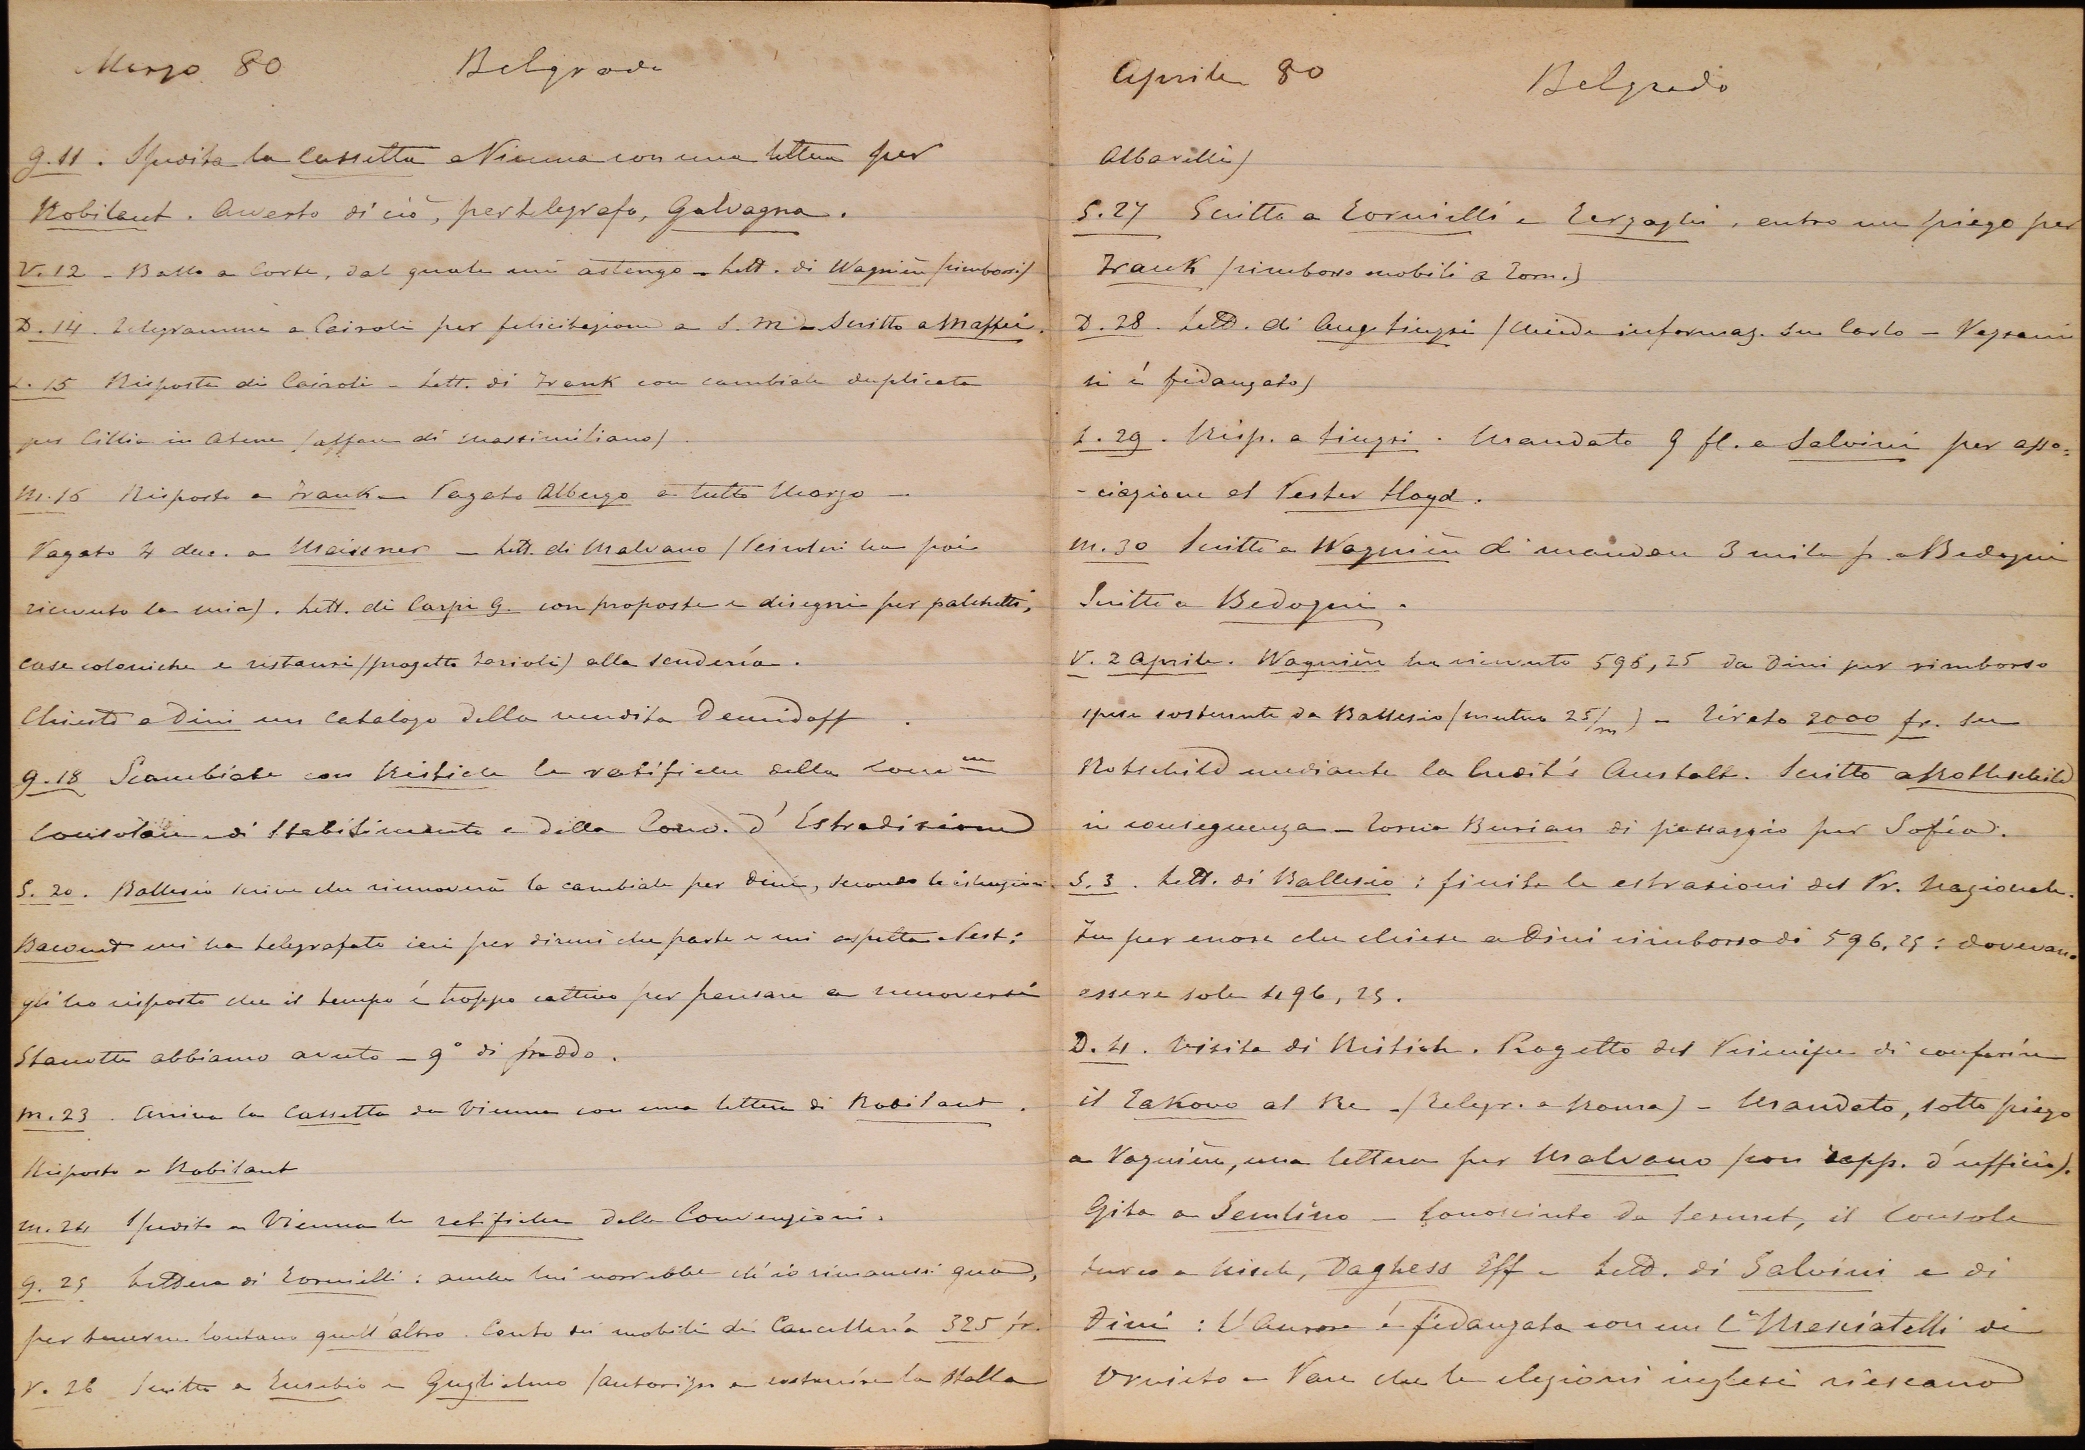 Marzo 80 Belgrado
G. 11. Spedita la cassetta a Vienna con una lettera per
Robilant. Avverto di ciò, per telegrafo, Galvagna.
V. 12 - Ballo a Corte, dal quale mi astengo - Lett. di Wagnière (rimborsi)
D. 14. Telegramma a Cairoli per felicitazioni a S. M. - Scritto a Maffei.
L. 15 Risposta di Cairoli - Lett. di Frank con cambiale duplicata
per Cillia in Atene (affare di Massimiliano).
M. 16 Risposto a Frank - Pagato Albergo a tutto Marzo -
Pagato 4 duc. a Meissner - Lett. di Malvano (Peiroleri ha poi
ricevuto la mia). Lett. di Carpi G. con proposte e disegni per palchetti,
case coloniche e ristauri (progetto Zarioli) alla scuderia.
Chiesto a Dini un catalogo della vendita Demidoff.
G. 18 Scambiate con Ristich le ratifiche della Conv.ne
Consolare e di Stabilimento e della Conv. d'Estradizione
S. 20. Ballesio scrive che rinnoverà la cambiale per Dini, secondo le istruzioni.
mi ha telegrafato ieri per dirmi che parte e mi aspetta a Pest:
gli ho risposto che il tempo é troppo cattivo per pensare a muoversi
Stanotte abbiamo avuto - 9° di freddo.
M. 23. Arriva la Cassetta da Vienna con una lettera di Robilant.
Risposto a Robilant
M. 24 Spedite a Vienna le ratifiche delle Convenzioni.
G. 25 Lettera di Tornielli: anche lui vorrebbe ch'io rimanessi quà,
per tenerne lontano quell'altro. Conto dei mobili di Cancelleria 325 fr.
V. 26 Scritto a Eusebio e Guglielmo (autorizzo a costruire la stalla
Aprile 80 Belgrado
Albarelli)
S. 27 Scritto a Tornielli e Terzaghi, entro un piego per
Frank (rimborso mobili a Torn.)
D. 28. Lett. di Aug. Linzsi (chiede informaz. su Carlo -
si é fidanzato)
L. 29. Risp. a Linzsi. Mandato 9 fl. a Salvini per asso-
-ciazione al Pester Lloyd.
M. 30 Scritto a Wagnière di mandare 3 mila fr. a Bedogni
Scritto a Bedogni.
V. 2 Aprile. Wagnière ha ricevuto 596,25 da Dini per rimborso
spese sostenute da Ballesio (mutuo 25/m) - Tirato 2000 fr. su
Rotschild mediante la Credit's Anstalt. Scritto a Rothschild
in conseguenza - Torna Burian di passaggio per Sofia.
S. 3. Lett. di Ballesio: finite le estrazioni del Pr. Nazionale.
Fu per errore che chiese a Dini rimborso di 596,25: dovevano
essere sole 496,25.
D. 4. Visita di Ristich. Progetto del Principe di conferire
il Takovo al Re - (Telegr. a Roma) - Mandato, sotto piego
a Wagnière, una lettera per Malvano (con rapp. d'ufficio).
Gita a Semlino - Conosciuto da Sermet, il Console
turco a Nisch, Daghess Eff - Lett. di Salvini e di
Dini: l'Aurora é fidanzata con un Cte Mesciatelli di
Orvieto - Pare che le elezioni inglesi riescano